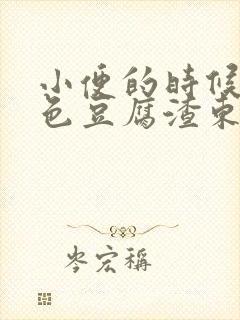 小便的時候
色豆腐渣東
岑宏稱